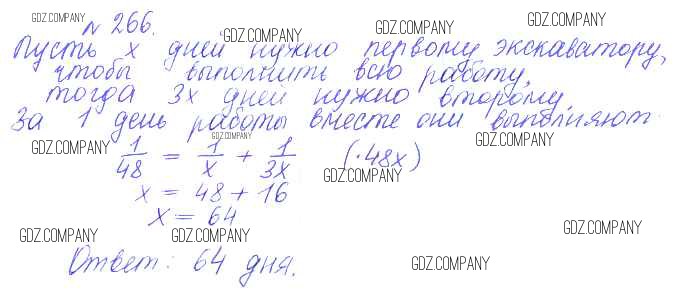 № 266.
Пусть x дней нужно первому экскаватору,
чтобы выполнить всю работу,
тогда 3x дней нужно второму.
За 1 день работы вместе они выполняют:
1/48 = 1/x + 1/3x (·48x)
x = 48 + 16
x = 64
Ответ: 64 дня.
GDZ.COMPANY
GDZ.COMPANY
GDZ.COMPANY
GDZ.COMPANY
GDZ.COMPANY
GDZ.COMPANY
GDZ.COMPANY
GDZ.COMPANY
GDZ.COMPANY
GDZ.COMPANY
GDZ.COMPANY
GDZ.COMPANY
GDZ.COMPANY
GDZ.COMPANY